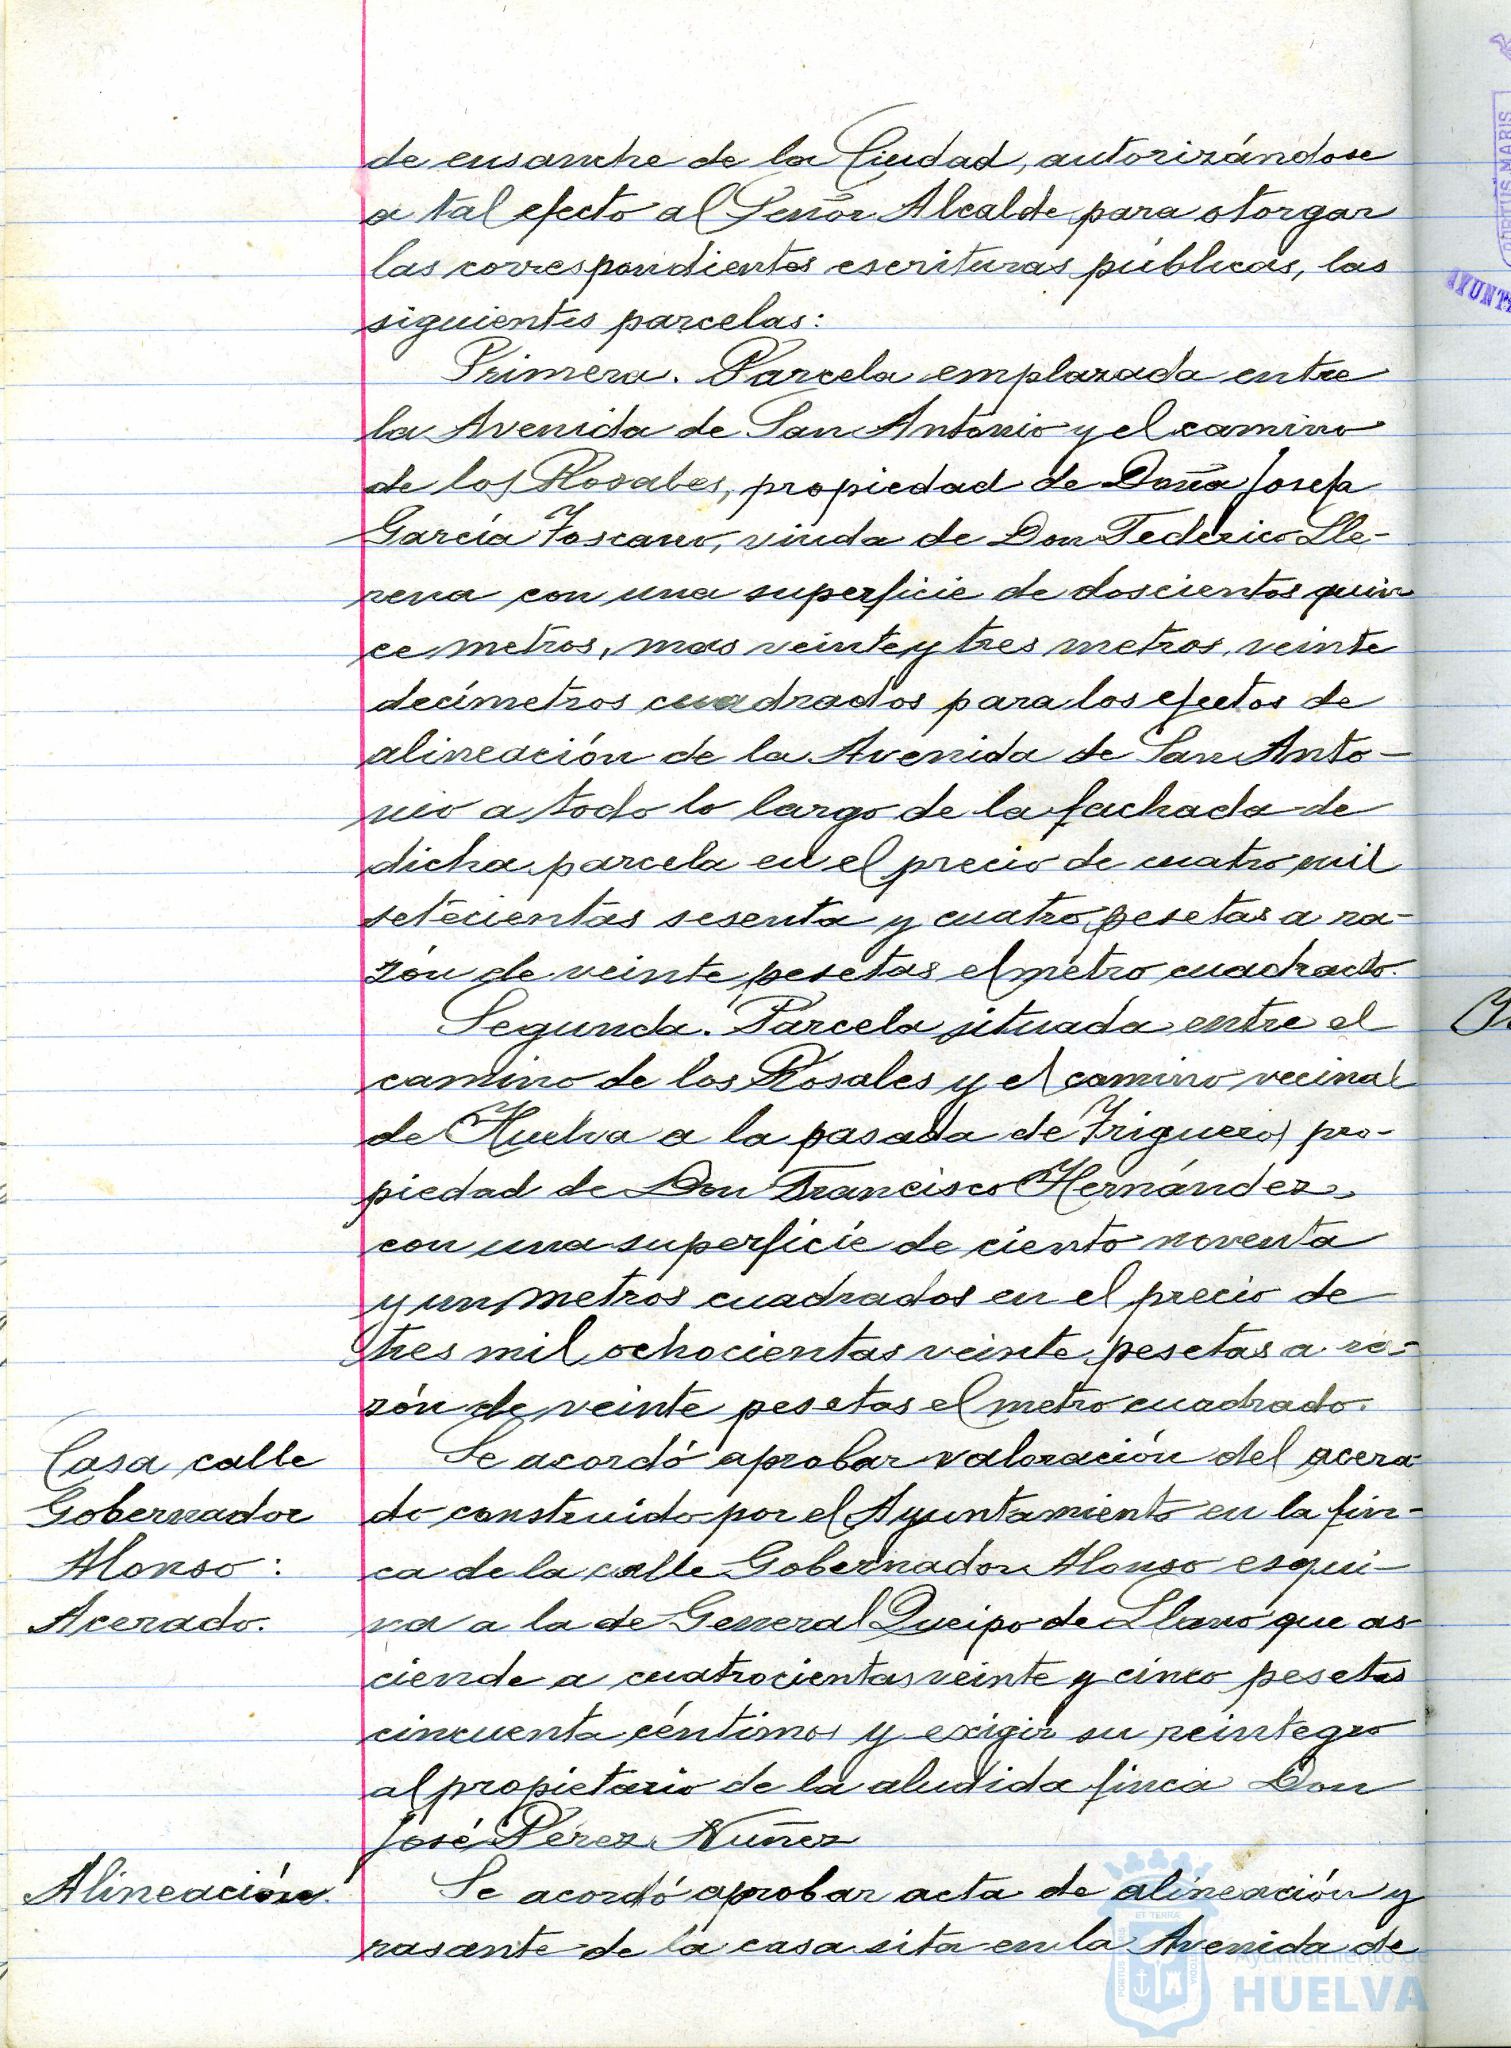 de ensanche de la Ciudad, autorizándose
a tal efecto al Señor Alcalde para otorgar
las correspondientes escrituras públicas, las
siguientes parcelas:
Primera. Parcela emplazada entre
la Avenida de San Antonio y el camino
de los Rosales, propiedad de Doña Josefa
García Toscano, viuda de Don Federico Lle-
rena con una superficie de doscientos quin
ce metros, mas veinte y tres metros, veinte
decímetros cuadrados para los efectos de
alineación de la Avenida de San Anto-
nio a todo lo largo de la fachada de
dicha parcela en el precio de cuatro mil
setecientas sesenta y cuatro pesetas a ra-
zón de veinte pesetas el metro cuadrado.
Segunda. Parcela situada entre el
camino de los Rosales y el camino vecinal
de Huelva a la pasada de Trigueros pro-
piedad de Don Francisco Hernández,
con una superficie de ciento noventa
y un metros cuadrados en el precio de
tres mil ochocientas veinte pesetas a ra-
zón de veinte pesetas el metro cuadrado.
Casa calle
Gobernador
Alonso:
Acerado.
Se acordó aprobar valoración del acera
do construido por el Ayuntamiento en la fin-
ca de la calle Gobernador Alonso esqui-
na a la de General Queipo de Llano que as
ciende a cuatrocientas veinte y cinco pesetas
cincuenta céntimos y exigir su reintegro
al propietario de la aludida finca Don
José Pérez Nuñez
Alineación.
Se acordó aprobar acta de alineación y
rasante de la casa sita en la Avenida de
Ayuntamiento de
HUELVA
PORTUS MARIS
AYUNT